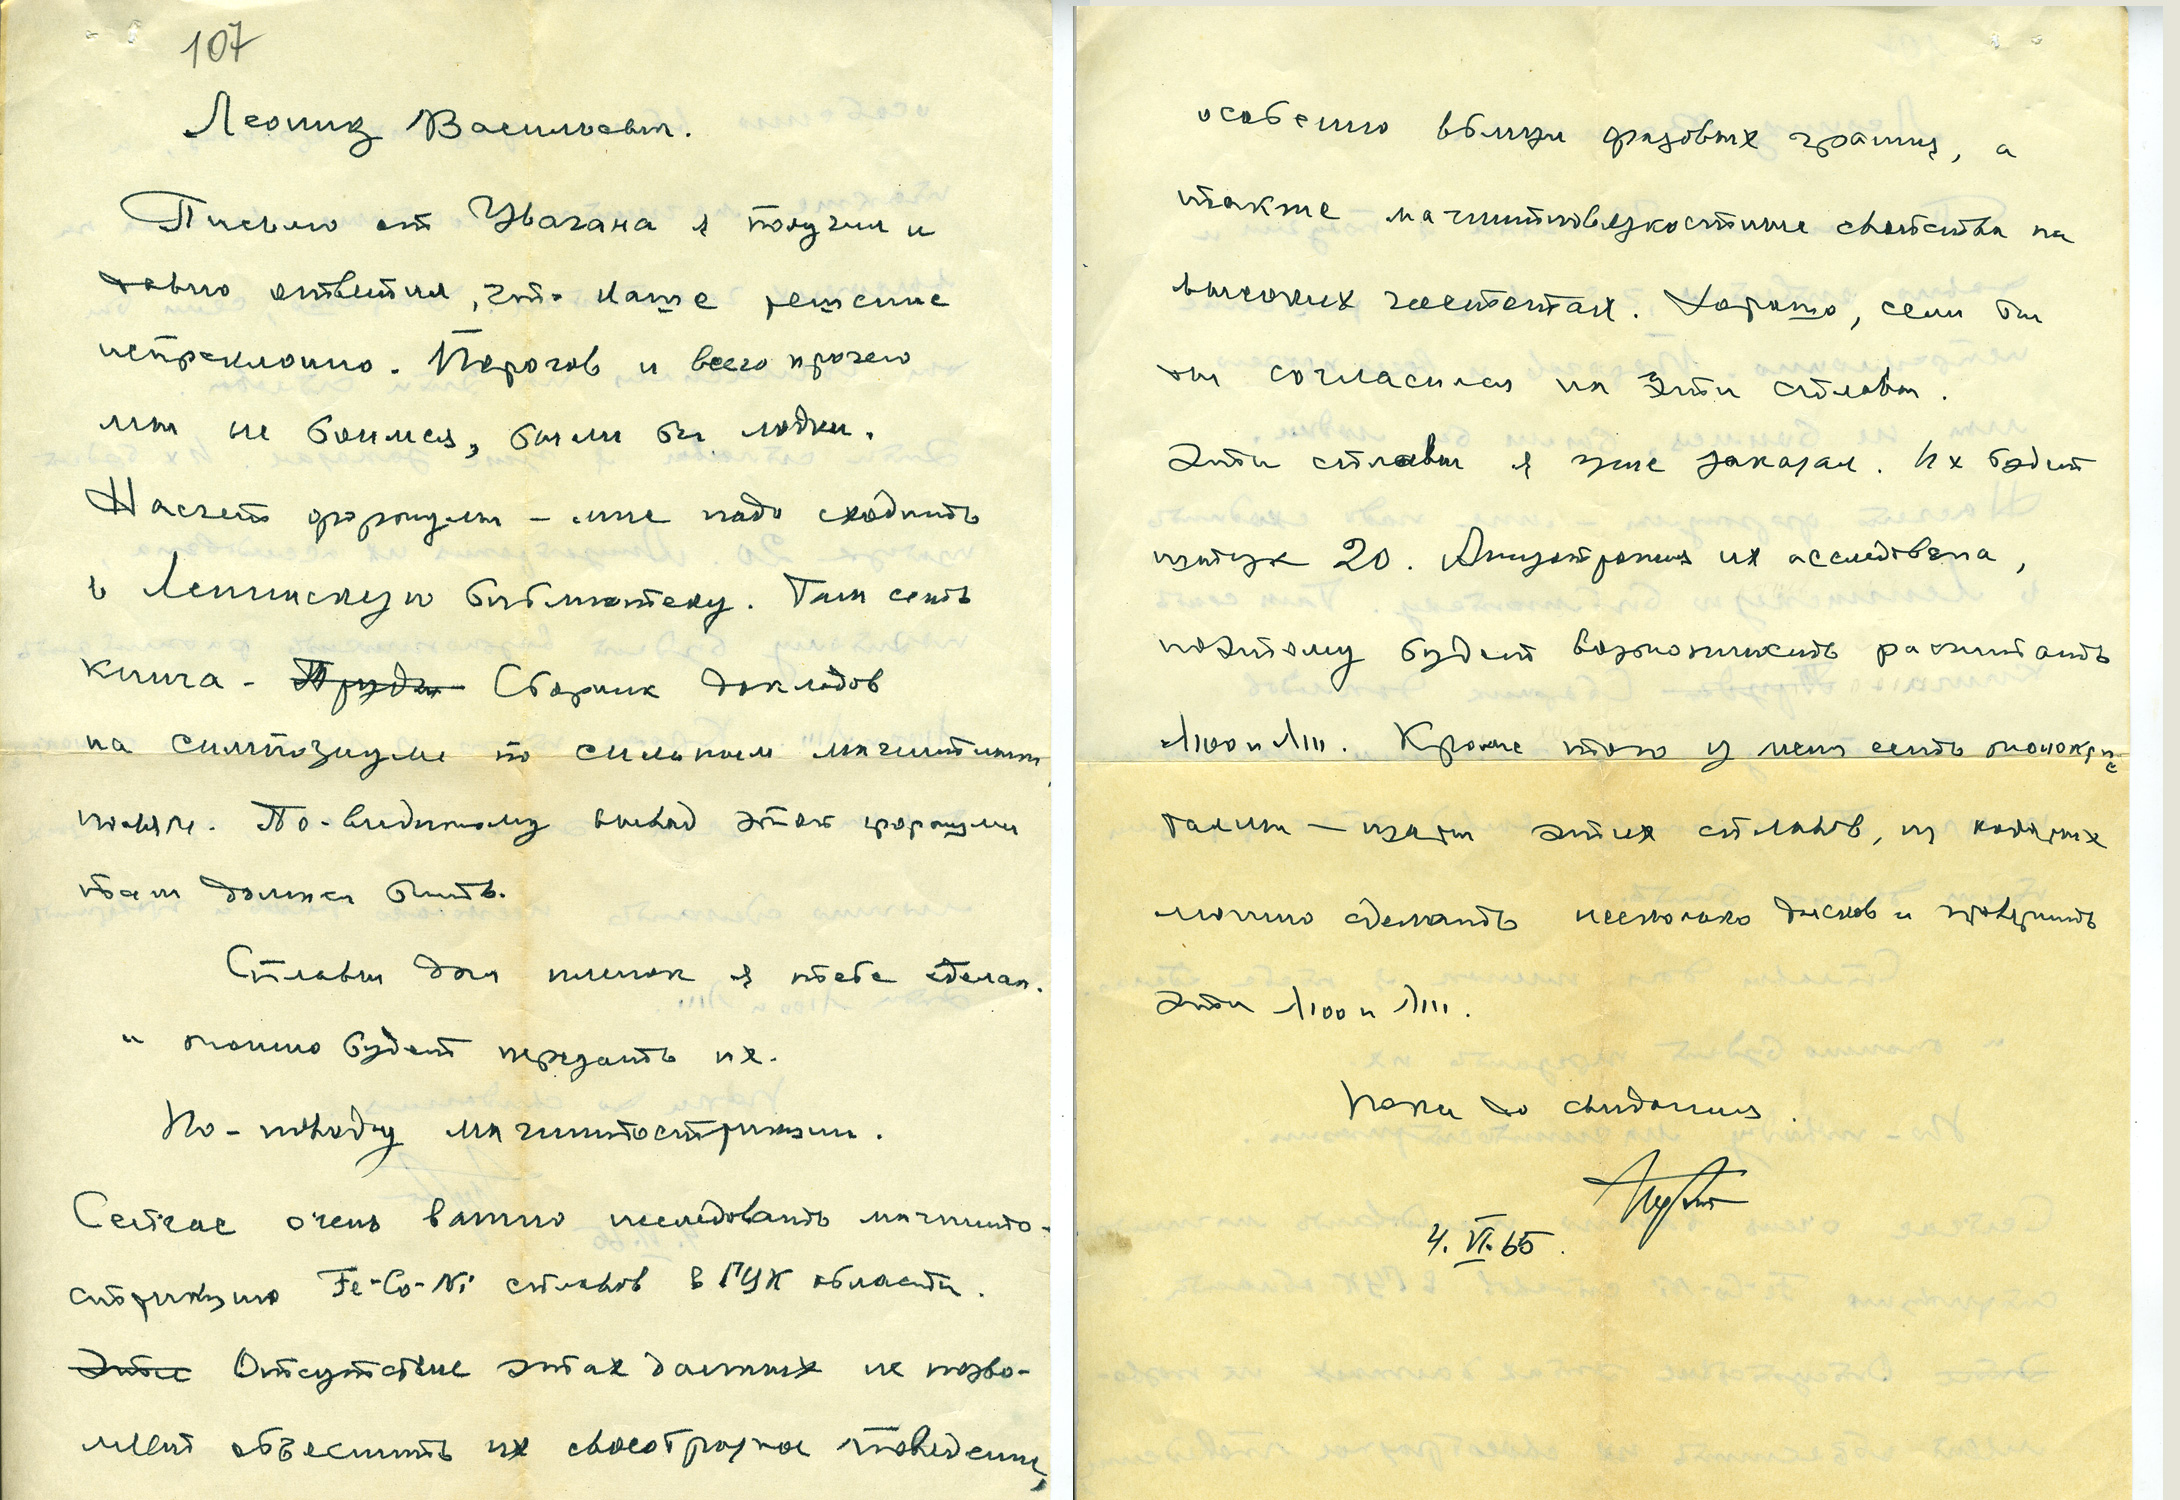 107
Леонид Васильевич.
Письмо от Увагана я получил и
давно ответил, что наше решение
непреклонно. Порогов и всего прочего
мы не боимся, были бы лодки.
Насчет формулы – мне надо сходить
в Ленинскую библиотеку. Там есть
книга – Труды Сборник докладов
на симпозиуме по сильным магнитным
полям. По-видимому вывод этой формулы
там должен быть.
Сплавы для пленок я тебе сделал.
и можно будет передать их.
По-поводу магнитострикции.
Сейчас очень важно исследовать магнито-
стрикцию Fe-Co-Ni сплавов в ГЦК области.
Этое Отсутствие этих данных не позво-
ляет объяснить их своеобразное поведение,
особенно вблизи фазовых границ, а
также магнитновязкостные свойства на
высоких частотах. Хорошо, если бы
ты согласился на эти сплавы.
Эти сплавы я уже заказал. Их будет
штук 20. Анизотропия их исследована,
поэтому будет возможность расчитать
λ100 и λ111. Кроме того у меня есть монокрис
таллы – изъ этих сплавов, из которых
можно сделать несколько дисков и проверить
эти λ100 и λ111.
Пока до свидания.
4.VI.65.